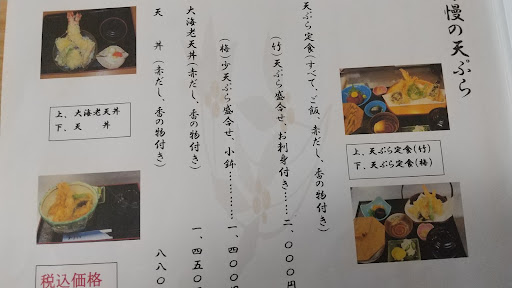 慢の天ぷら
天ぷら定食(すべて、ご飯、赤だし、香の物付き)
(竹)天ぷら盛合せ、お刺身付き……二、〇〇〇円
(梅)少天ぷら盛合せ、小鉢…………一、四〇〇円
大海老天丼(赤だし、香の物付き) 一、四五〇
天 丼 (赤だし、香の物付き) 八八〇
上、天ぷら定食(竹)
下、天ぷら定食(梅)
上、大海老天丼
下、天 丼
税込価格